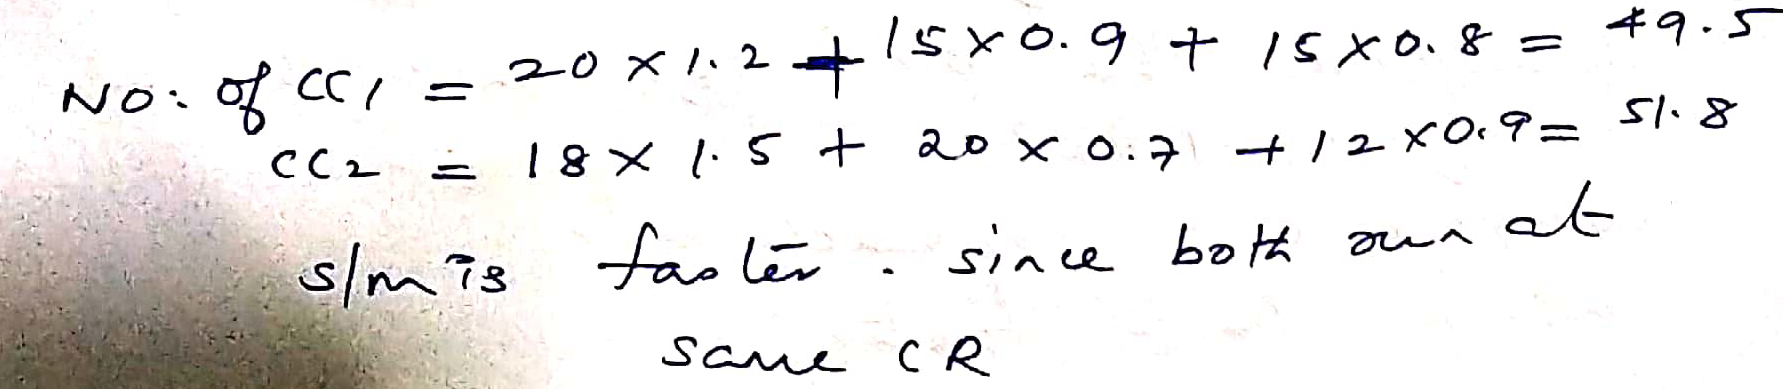 No: of CC1 = 20 × 1.2 + 15 × 0.9 + 15 × 0.8 = 49.5
CC2 = 18 × 1.5 + 20 × 0.7 + 12 × 0.9 = 51.8
s/m is faster. since both run at
same CR